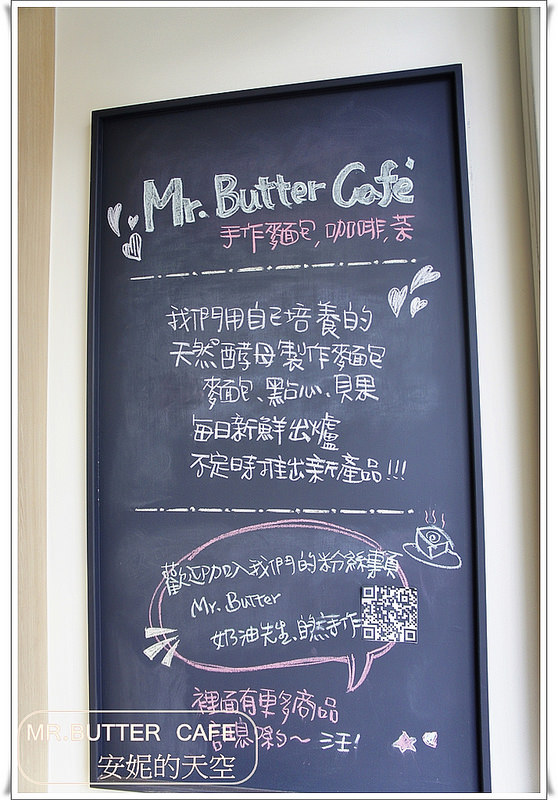 Mr. Butter Cafe
手作麵包,咖啡,茶
我們用自己培養的
天然酵母製作麵包
麵包、點心、貝果
每日新鮮出爐
不定時推出新產品!!!
歡迎加入我們的粉絲專頁
Mr. Butter
奶油先生、自然手作
裡面有更多商品
訊息喲~ 汪!
MR.BUTTER CAFE
安妮的天空